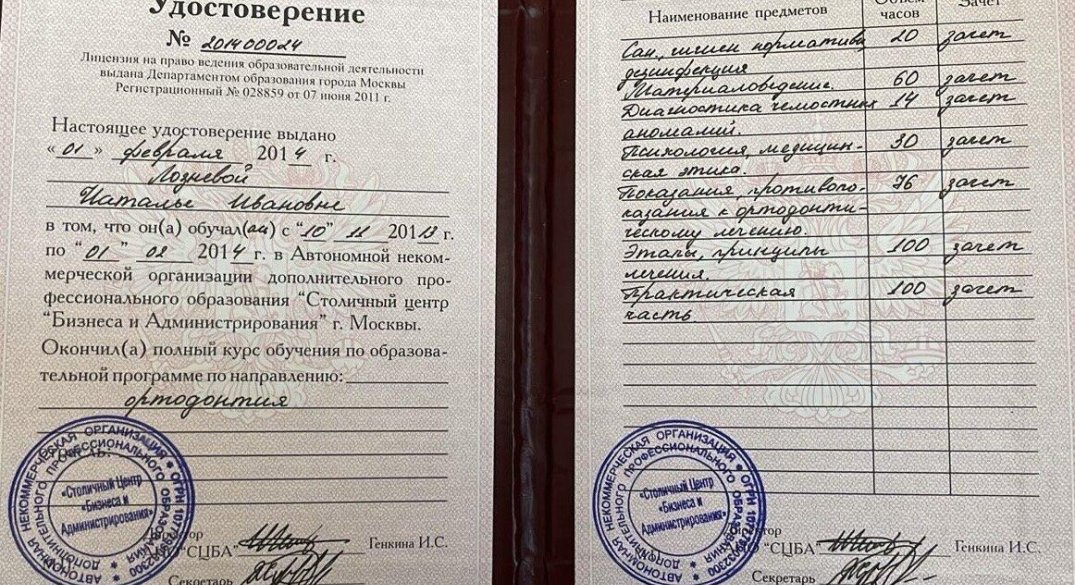 Удостоверение
№ 201400024
Лицензия на право ведения образовательной деятельности
выдана Департаментом образования города Москвы
Регистрационный № 028859 от 07 июня 2011 г.
Настоящее удостоверение выдано
« 01 » февраля 2014 г.
Лозневой
Наталье Ивановне
в том, что он(а) обучал(ась) с “10” 11 2013 г.
по “01” 02 2014 г. в Автономной неком-
мерческой организации дополнительного про-
фессионального образования “Столичный центр
“Бизнеса и Администрирования” г. Москвы.
Окончил(а) полный курс обучения по образова-
тельной программе по направлению:
ортодонтия
АВТОНОМНАЯ НЕКОММЕРЧЕСКАЯ ОРГАНИЗАЦИЯ
ДОПОЛНИТЕЛЬНОГО ПРОФЕССИОНАЛЬНОГО ОБРАЗОВАНИЯ
«Столичный Центр
«Бизнеса и
Администрирования»
“СЦБА” Генкина И.С.
Секретарь
Наименование предметов Объем часов Зачет
Сан. гигиен нормативы 20 зачет
дезинфекция
Материаловедение. 60 зачет
Диагностика челюстных 14 зачет
аномалий.
Психология, медицин- 30 зачет
ская этика.
Показания, противопо- 76 зачет
казания к ортодонти-
ческому лечению.
Этапы, принципы 100 зачет
лечения.
Практическая 100 зачет
часть
АВТОНОМНАЯ НЕКОММЕРЧЕСКАЯ ОРГАНИЗАЦИЯ
ДОПОЛНИТЕЛЬНОГО ПРОФЕССИОНАЛЬНОГО ОБРАЗОВАНИЯ
«Столичный Центр
«Бизнеса и
Администрирования»
Директор
“СЦБА” Генкина И.С.
Секретарь